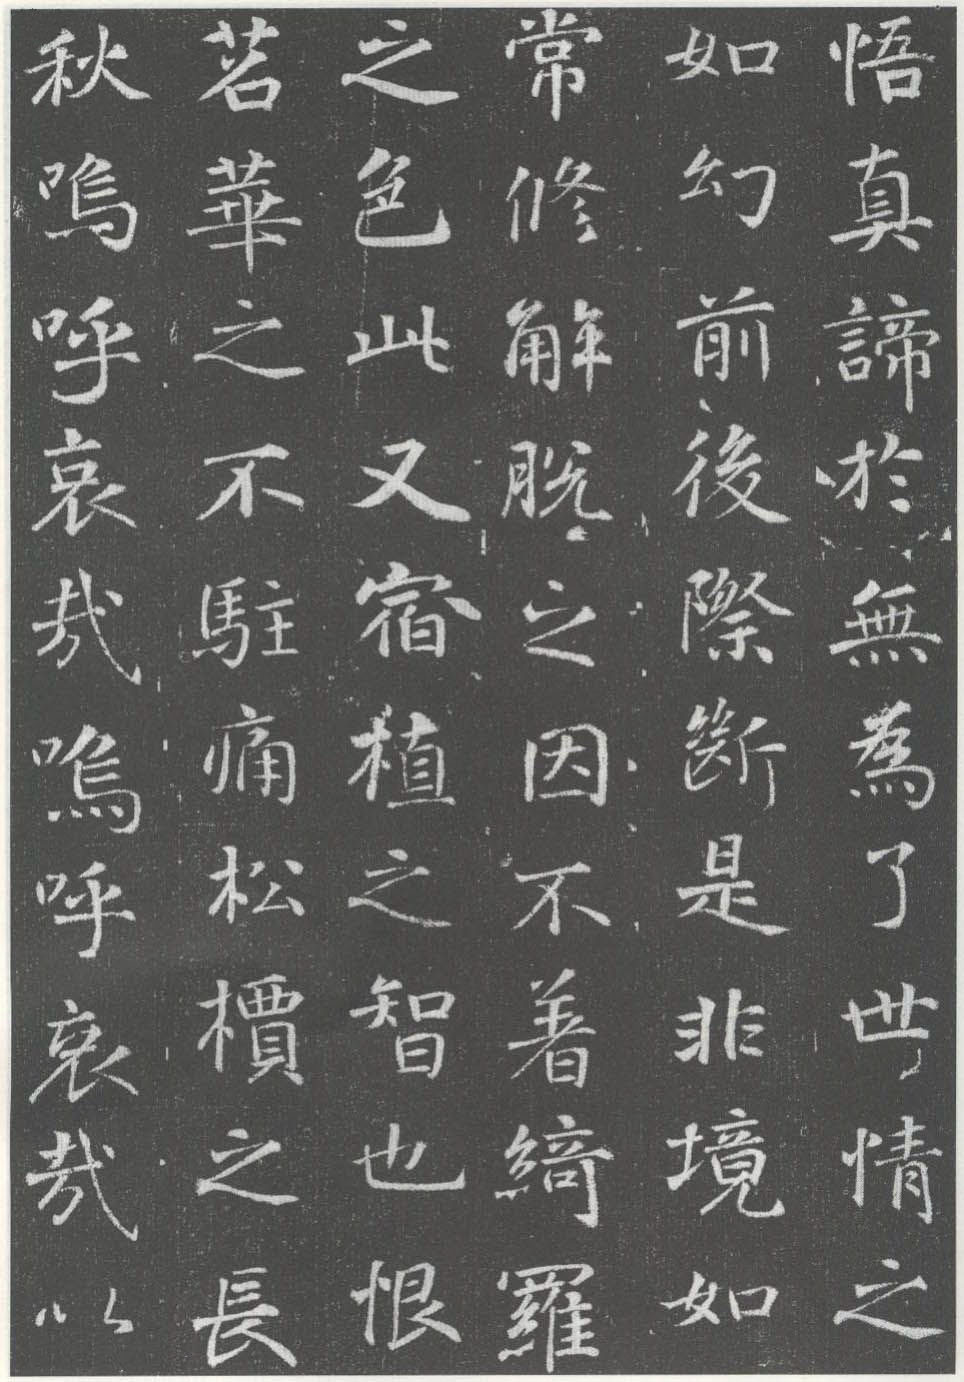 悟真諦於無為了世情之
如幻前後際斷是非境如
常修解脫之因不著綺羅
之色此又宿植之智也恨
茗華之不駐痛松檟之長
秋嗚呼哀哉嗚呼哀哉以